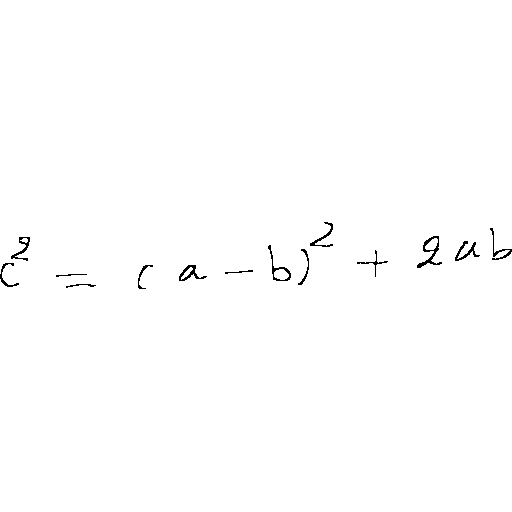 c² = (a - b)² + 2ab